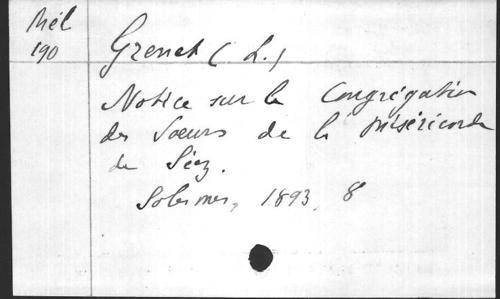 Mél
190
Grenet (L.)
Notice sur la Congrégation
des Soeurs de la Miséricorde
de Séez.
Solesmes, 1893, 8